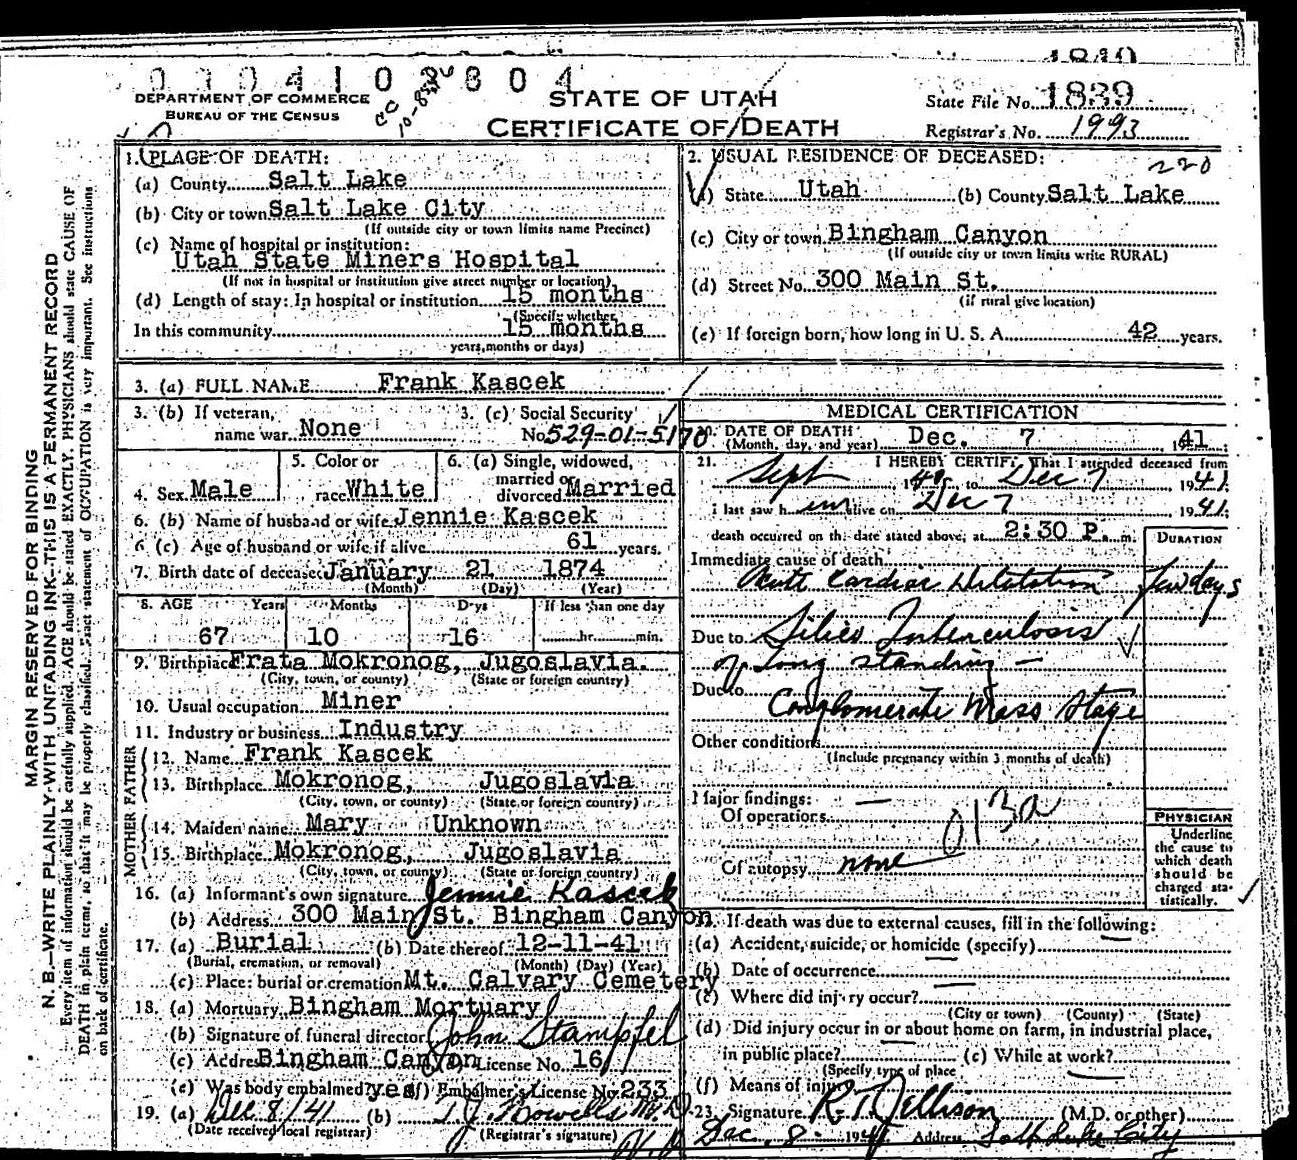 1840
0104102804
DEPARTMENT OF COMMERCE
BUREAU OF THE CENSUS
STATE OF UTAH
CERTIFICATE OF DEATH
State File No. 1839
Registrar's No. 1993
1. PLACE OF DEATH:
(a) County Salt Lake
(b) City or town Salt Lake City
(If outside city or town limits name Precinct)
(c) Name of hospital or institution:
Utah State Miners Hospital
(If not in hospital or institution give street number or location)
(d) Length of stay: In hospital or institution 15 months
(Specify whether
In this community 15 months
years, months or days)
2. USUAL RESIDENCE OF DECEASED:
220
(a) State Utah (b) County Salt Lake
(c) City or town Bingham Canyon
(If outside city or town limits write RURAL)
(d) Street No. 300 Main St.
(if rural give location)
(e) If foreign born, how long in U. S. A. 42 years.
3. (a) FULL NAME Frank Kascek
3. (b) If veteran, name war None
3. (c) Social Security No. 529-01-5170
4. Sex Male
5. Color or race White
6. (a) Single, widowed, married or divorced Married
6. (b) Name of husband or wife Jennie Kascek
6 (c) Age of husband or wife if alive 61 years.
7. Birth date of deceased January 21 1874
(Month) (Day) (Year)
8. AGE Years Months Days If less than one day
67 10 16 hr. min.
9. Birthplace Frata Mokronog, Jugoslavia.
(City, town, or county) (State or foreign country)
10. Usual occupation Miner
11. Industry or business Industry
FATHER
12. Name Frank Kascek
13. Birthplace Mokronog, Jugoslavia
(City, town, or county) (State or foreign country)
MOTHER
14. Maiden name Mary Unknown
15. Birthplace Mokronog, Jugoslavia
(City, town, or county) (State or foreign country)
16. (a) Informant's own signature Jennie Kascek
(b) Address 300 Main St. Bingham Canyon
17. (a) Burial (b) Date thereof 12-11-41
(Burial, cremation, or removal) (Month) (Day) (Year)
(c) Place: burial or cremation Mt. Calvary Cemetery
18. (a) Mortuary Bingham Mortuary
(b) Signature of funeral director John Stampfel
(c) Address Bingham Canyon (d) License No. 16
(e) Was body embalmed? yes (f) Embalmer's License No. 233
19. (a) Dec 8/41 (b) T. J. Howells M.D.
(Date received local registrar) (Registrar's signature)
MEDICAL CERTIFICATION
20. DATE OF DEATH
(Month, day, and year) Dec. 7 1941
21. I HEREBY CERTIFY That I attended deceased from
Sept 1940, to Dec 7, 1941.
I last saw him alive on Dec 7 1941.
death occurred on the date stated above, at 2:30 P. m.
DURATION
Immediate cause of death
Acute Cardiac Dilatation few days
Due to Silico Tuberculosis
of long standing —
Due to
Conglomerate Mass Stage
Other conditions
(Include pregnancy within 3 months of death)
Major findings: —
Of operations
013a
Of autopsy none
PHYSICIAN
Underline
the cause to
which death
should be
charged sta-
tistically.
22. If death was due to external causes, fill in the following:
(a) Accident, suicide, or homicide (specify)
(b) Date of occurrence
(c) Where did injury occur?
(City or town) (County) (State)
(d) Did injury occur in or about home on farm, in industrial place,
in public place? (e) While at work?
(Specify type of place
(f) Means of injury
23. Signature R. T. Jellison (M.D. or other)
Dec. 8 1941 Address Salt Lake City
MARGIN RESERVED FOR BINDING
N. B.—WRITE PLAINLY-WITH UNFADING INK-THIS IS A PERMANENT RECORD
Every item of information should be carefully supplied. AGE should be stated EXACTLY. PHYSICIANS should state CAUSE OF
DEATH in plain terms, so that it may be properly classified. Exact statement of OCCUPATION is very important. See instructions
on back of certificate.